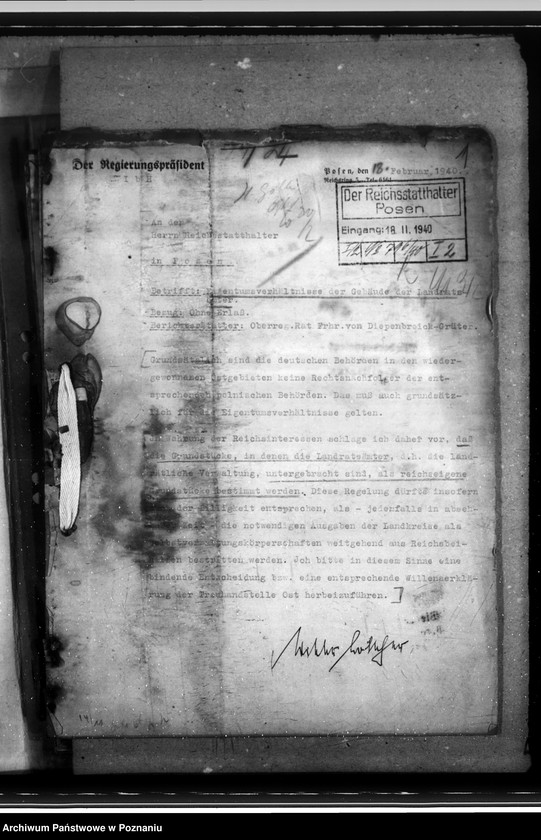 Der Regierungspräsident
I
1
Posen, den 13. Februar 1940.
Der Reichsstatthalter
Posen
Eingang: 18. II. 1940
I 2
An den
Herrn Reichsstatthalter
in Posen.
Betrifft: Eigentumsverhältnisse der Gebäude der Landrats-
ämter.
Bezug: Ohne Erlaß.
Berichterstatter: Oberreg.Rat Frhr.von Diepenbroick-Grüter.
Grundsätzlich sind die deutschen Behörden in den wieder-
gewonnenen Ostgebieten keine Rechtsnachfolger der ent-
sprechenden polnischen Behörden. Das muß auch grundsätz-
lich für die Eigentumsverhältnisse gelten.
In Wahrung der Reichsinteressen schlage ich daher vor, daß
die Grundstücke, in denen die Landratsämter, d.h. die land-
rätliche Verwaltung, untergebracht sind, als reichseigene
Grundstücke bestimmt werden. Diese Regelung dürfte insofern
der Billigkeit entsprechen, als - jedenfalls in abseh-
Zeit - die notwendigen Ausgaben der Landkreise als
Selbstverwaltungskörperschaften weitgehend aus Reichsbei-
bestritten werden. Ich bitte in diesem Sinne eine
bindende Entscheidung bzw. eine entsprechende Willenserklä-
rung der Treuhandstelle Ost herbeizuführen.
Archiwum Państwowe w Poznaniu